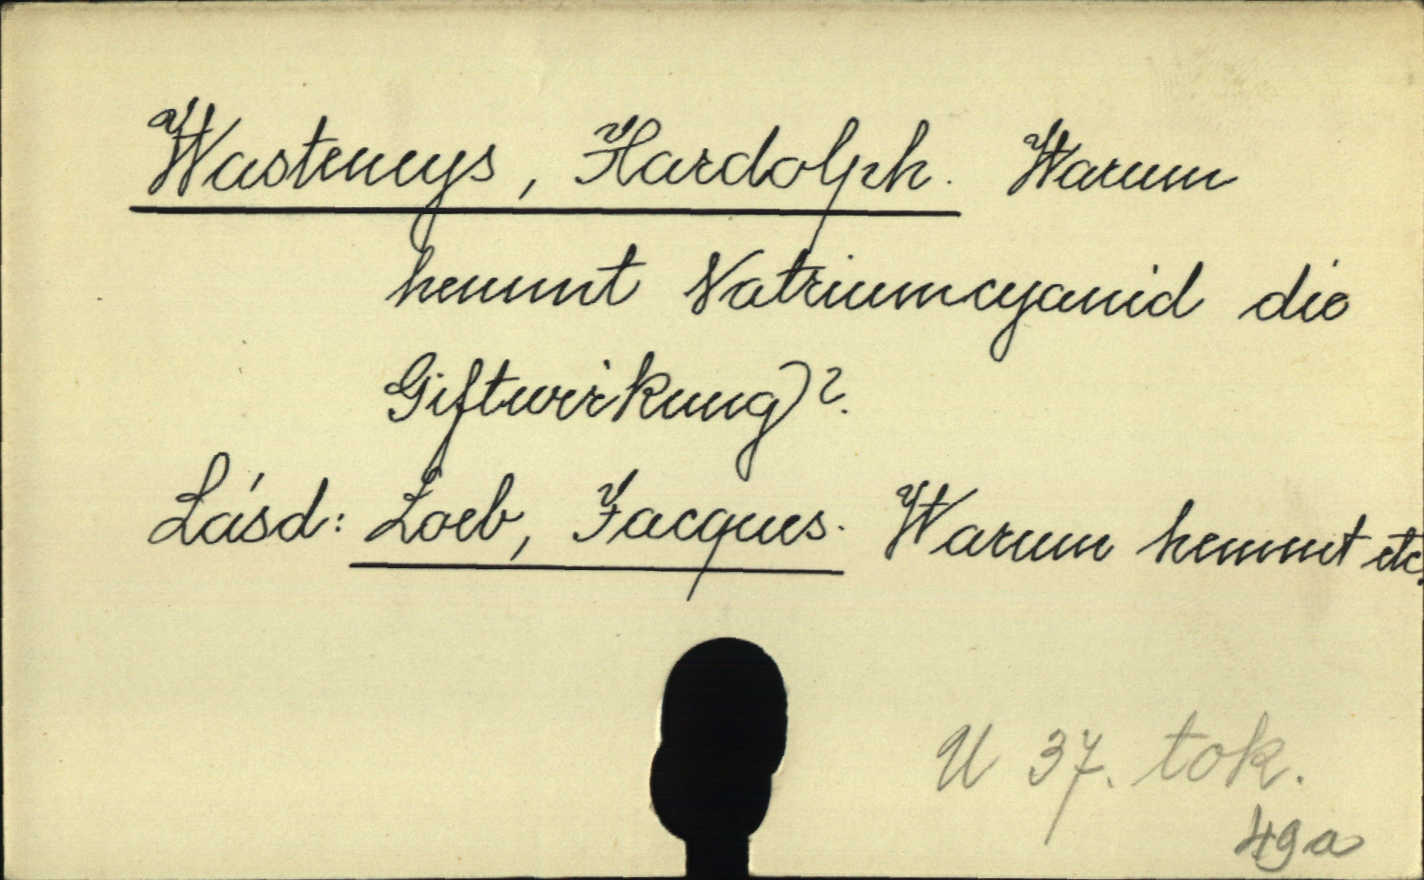 Wasteneys, Hardolph. Warum
hemmt Natriumcyanid die
Giftwirkung?.
Lásd: Loeb, Jacques. Warum hemmt etc.
U 37. tok.
49a